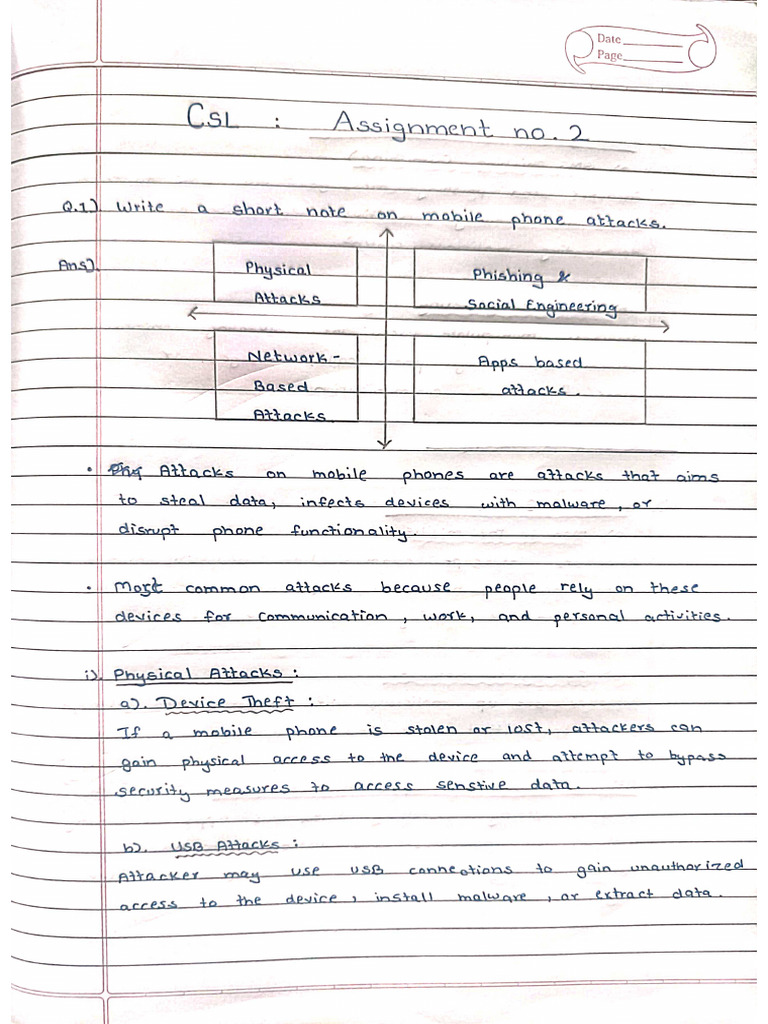 Date
Page
CSL : Assignment no. 2
Q.1) Write a short note on mobile phone attacks.
Ans).
Physical
Attacks
Phishing &
Social Engineering
Network-
Based
Attacks
Apps based
attacks.
• Attacks on mobile phones are attacks that aims
to steal data, infects devices with malware, or
disrupt phone functionality.
• Most common attacks because people rely on these
devices for communication, work, and personal activities.
i). Physical Attacks :
a). Device Theft :
If a mobile phone is stolen or lost, attackers can
gain physical access to the device and attempt to bypass
security measures to access senstive data.
b). USB Attacks :
Attacker may use USB connections to gain unauthorized
access to the device, install malware, or extract data.